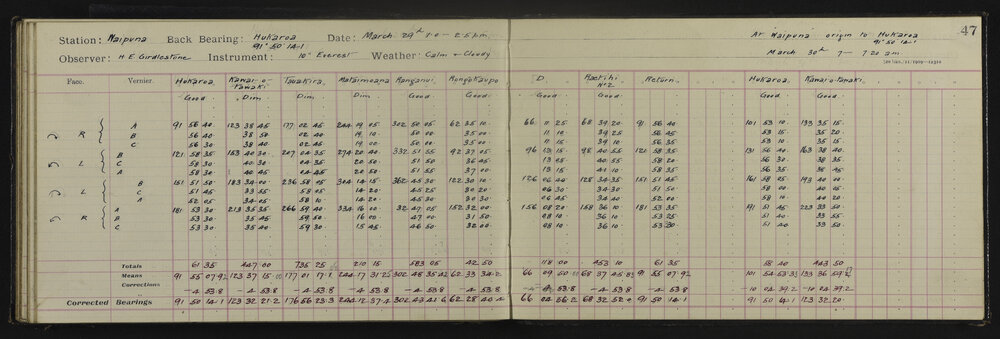 47
Station: Waipuna Back Bearing: Hukaroa 91° 50' 14·1 Date: March 29th 1·0 – 2·5 p.m.
Observer: H E Girdlestone Instrument: 10" Everest Weather: Calm + Cloudy
At Waipuna origin to Hukaroa
91° 50' 14·1
March 30th 7 – 7·20 a.m.
Face. Vernier. Hukaroa Kawa-o-Pawaki Taoakira Mataimoana Ranganui Rongokaupo D Raekihi No 2 Return. Hukaroa
Good Dim Dim Dim Good Good Good Good Good Good Good
R A 91 56 40 123 38 45 177 02 45 244 19 05 302 50 05 62 35 10 66 11 25 68 39 20 91 56 40 101 53 10 133 35 15
B 56 40 38 50 02 40 19 10 50 00 35 00 11 10 39 25 56 45 53 15 35 20
C 56 30 38 40 02 45 19 00 50 00 35 00 11 15 39 10 56 35 53 10 35 15
L B 121 58 35 153 40 30 207 04 35 274 20 40 332 51 55 92 37 05 96 13 15 98 40 55 121 58 35 131 56 40 163 38 40
C 58 30 40 30 04 35 20 50 51 50 36 45 13 05 40 55 58 20 56 30 38 35
A 58 30 40 45 04 45 20 50 51 55 37 00 13 15 41 10 58 35 56 35 38 45
L B 151 51 50 183 34 00 236 58 05 304 14 15 362 45 30 122 30 10 126 06 40 128 34 35 151 51 45 161 58 05 193 40 00
C 51 45 33 55 58 05 14 20 45 25 30 20 06 30 34 30 51 50 58 00 40 05
A 52 05 34 05 58 10 14 20 45 30 30 30 06 45 34 40 52 00 58 10 40 20
R A 181 53 30 213 35 35 266 59 40 334 16 00 32 47 05 152 32 00 156 08 20 158 36 10 181 53 35 191 51 45 223 33 50
B 53 30 35 45 59 50 16 00 47 00 31 50 08 10 36 10 53 25 51 40 33 55
C 53 30 35 40 59 30 15 45 46 50 32 00 08 10 36 10 53 25 51 40 33 50
Totals 61 35 447 00 735 25 210 15 583 05 42 50 118 00 453 10 61 35 58 40 443 50
Means 91 55 07·92 123 37 15·00 177 01 17·1 244 17 31·25 302 48 35·42 62 33 34·2 66 09 50·00 68 37 45·83 91 55 07·92 101 54 53·33 133 36 59·2
Corrections -4 53·8 -4 53·8 -4 53·8 -4 53·8 -4 53·8 -4 53·8 -4 53·8 -4 53·8 -4 53·8 -10 04 39·2 -10 04 39·2
Corrected Bearings 91 50 14·1 123 32 21·2 176 56 23·3 244 12 37·4 302 43 41·6 62 28 40·4 66 04 56·2 68 32 52·0 91 50 14·1 91 50 14·1 123 32 20·